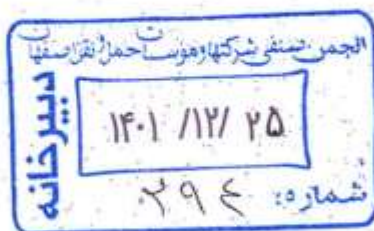 انجمن صنفی شرکتها و موسسات حمل و نقل اصفهان
دبیرخانه
۱۴۰۱ /۱۲/ ۲۵
شماره: ۲۹۴